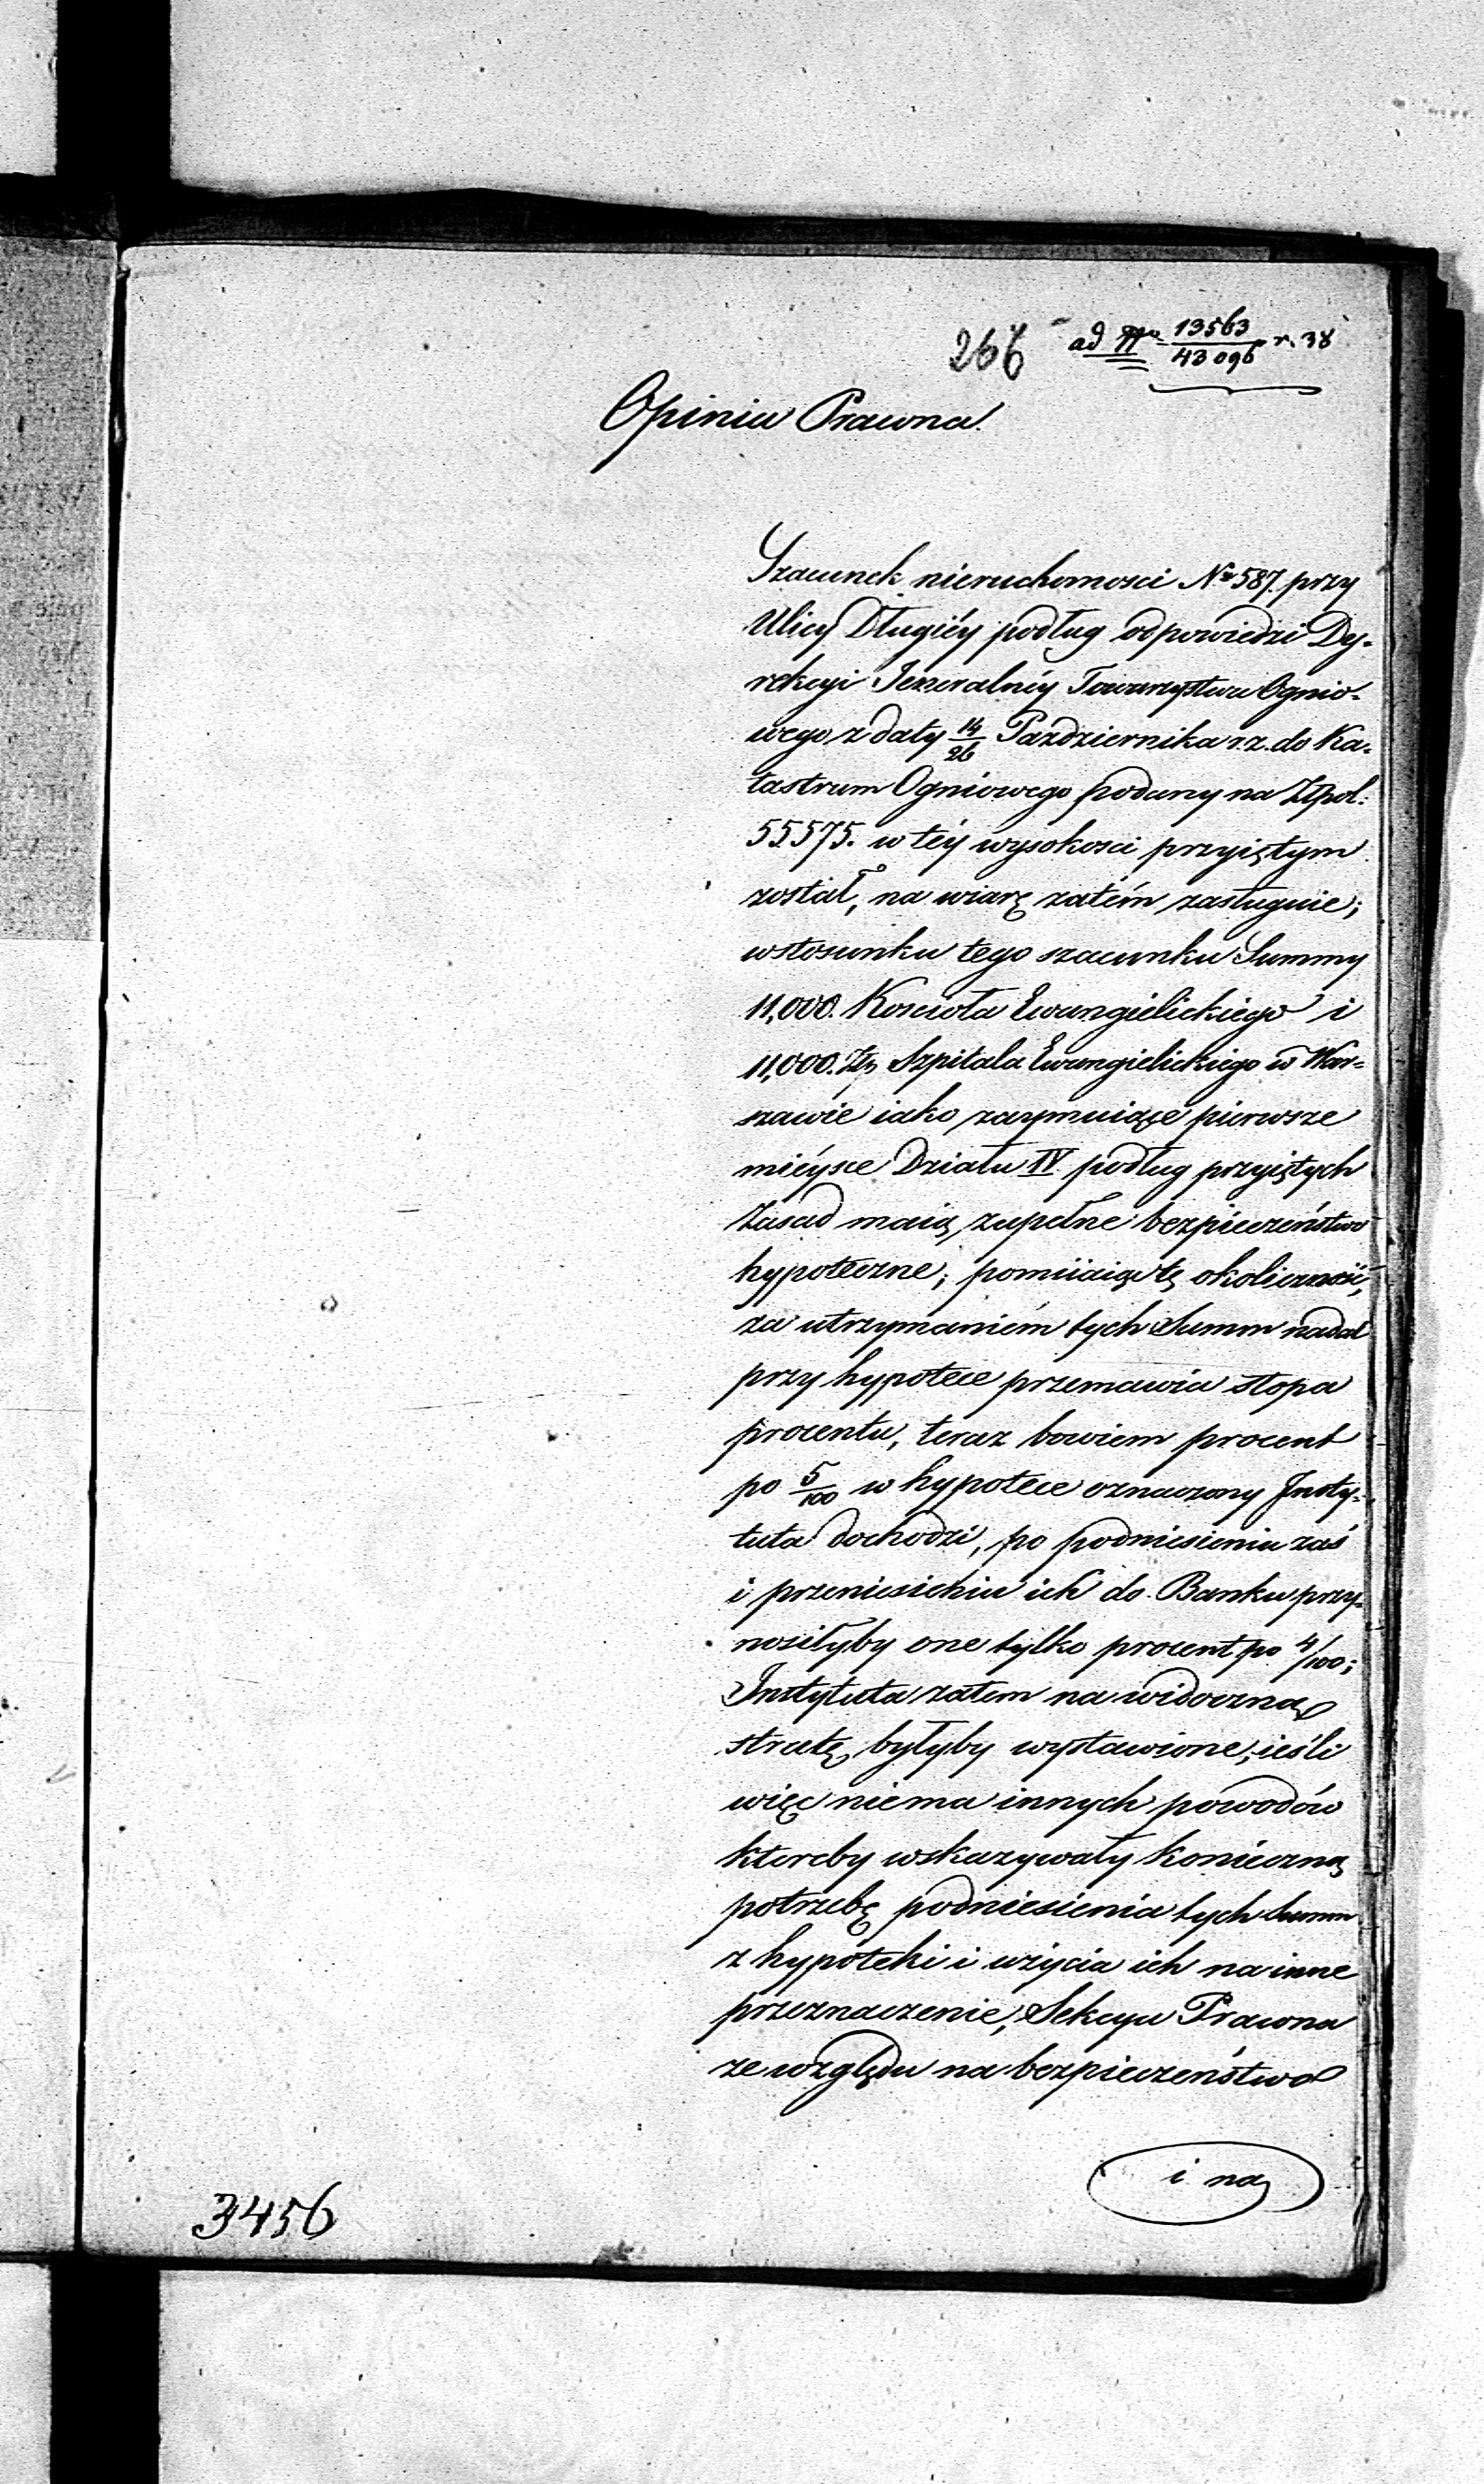 266
ad No 13563/43096 r. 38
Opinia Prawna.
Szacunek nieruchomosci No 587. przy
Ulicy Długiéy podług odpowiedzi Dy-
rekcyi Jeneralnéy Towarzystwa Ognio-
wego z daty 14/26 Pazdziernika r. z. do Ka-
tastrum Ogniowego podany na Złpol:
55575. w téy wysokosci przyiętym
został, na wiarę zatém zasługuie;
w stosunku tego szacunku Summy
11,000. Koscioła Ewangielickiego i
11,000. Złp Szpitala Ewangielickiego w War-
szawie iako zaymuiące pierwsze
mieysce Działu IV. podług przyiętych
Zasad maią zupełne bezpieczeństwo
hypoteczne; pomiiaiąc tę okoliczność,
za utrzymaniém tych Summ nadal
przy hypotece przemawia stopa
procentu, teraz bowiem procent
po 5/100 w hypotece oznaczony Insty-
tuta dochodzi, po podniesieniu zaś
i przeniesieniu ich do Banku przy-
nosiłyby one tylko procent po 4/100;
Instytuta zatem na widoczną
stratę byłyby wystawione, ieśli
więc niema innych powodów
ktoreby wskazywały konieczną
potrzebę podniesienia tych Summ
z hypoteki i użycia ich na inne
przeznaczenie, Sekcya Prawna
ze względu na bezpieczeństwo
i na
3456